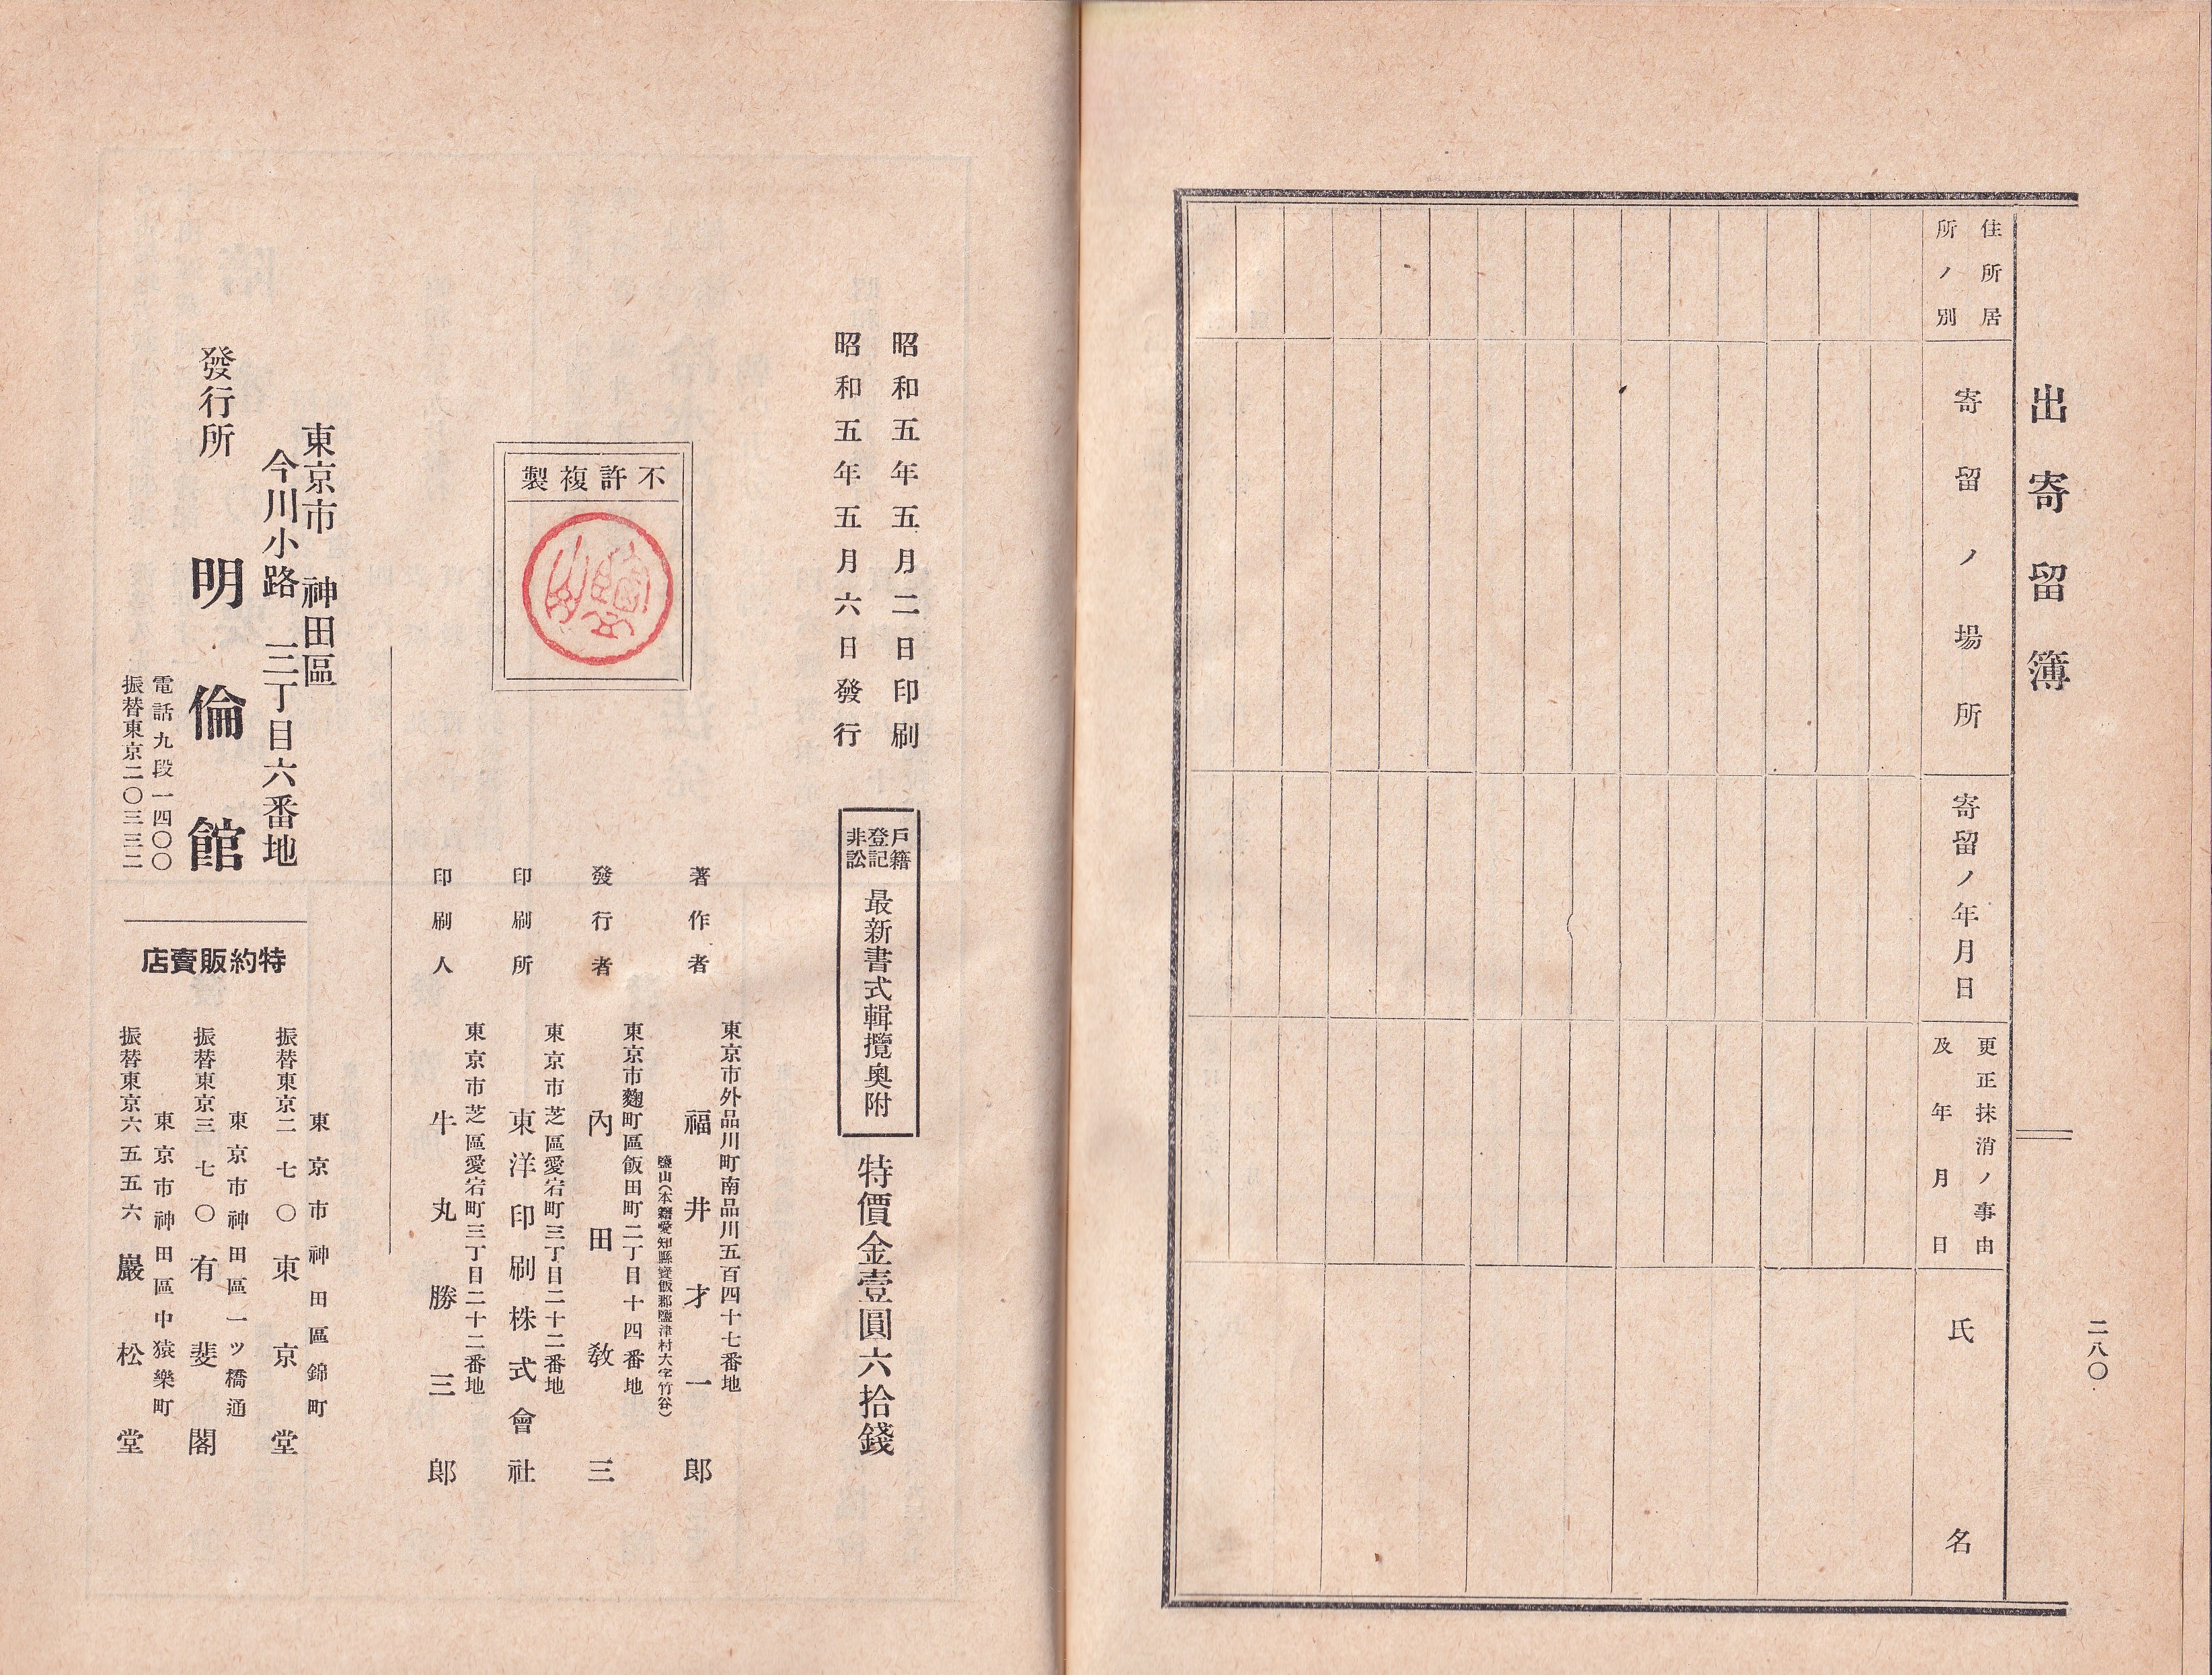 出寄留簿
二八〇
住所居
所ノ別
寄留ノ場所
寄留ノ年月日
更正抹消ノ事由
及年月日
氏名
昭和五年五月二日印刷
昭和五年五月六日發行
戶籍
登記
非訟
最新書式輯攬奧附
特價金壹圓六拾錢
不許複製
著作者
東京市外品川町南品川五百四十七番地
福井才一郎
鹽山(本籍愛知縣寳飯郡鹽津村大字竹谷)
發行者
東京市麴町區飯田町二丁目十四番地
內田敎三
印刷所
東京市芝區愛宕町三丁目二十二番地
東洋印刷株式會社
印刷人
東京市芝區愛宕町三丁目二十二番地
牛丸勝三郎
東京市神田區
今川小路三丁目六番地
發行所
明倫館
電話九段一四〇〇
振替東京二〇三三二
特約販賣店
東京市神田區錦町
振替東京二七〇東京堂
東京市神田區一ツ橋通
振替東京三七〇有斐閣
東京市神田區中猿樂町
振替東京六五五六巖松堂